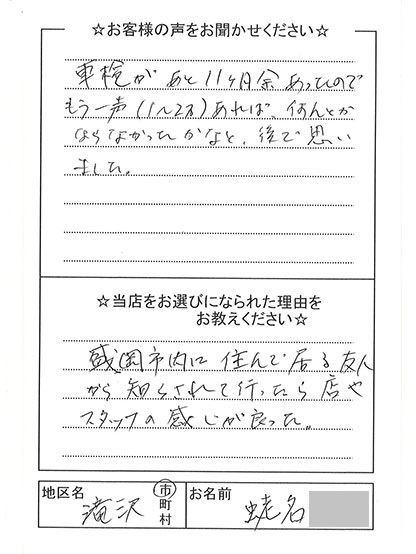 ☆お客様の声をお聞かせください☆
車検があと11ヶ月余あったので
もう一声(1〜2万)あれば、何んとか
ならなかったかなと、後で思い
ました。
☆当店をお選びになられた理由を
お教えください☆
盛岡市内に住んで居る友人
から知らされて行ったら店や
スタッフの感じが良った。
地区名 滝沢 市町村 お名前 蛯名